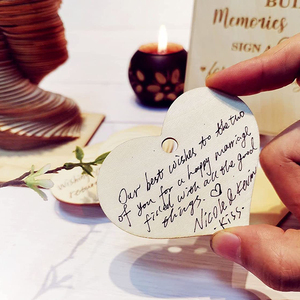 BUI
Memories
SIGN A
Our best wishes to the two
of you for a happy marriage
filled with all the good
things. ♡
Nicole & Kevin
Kiss.